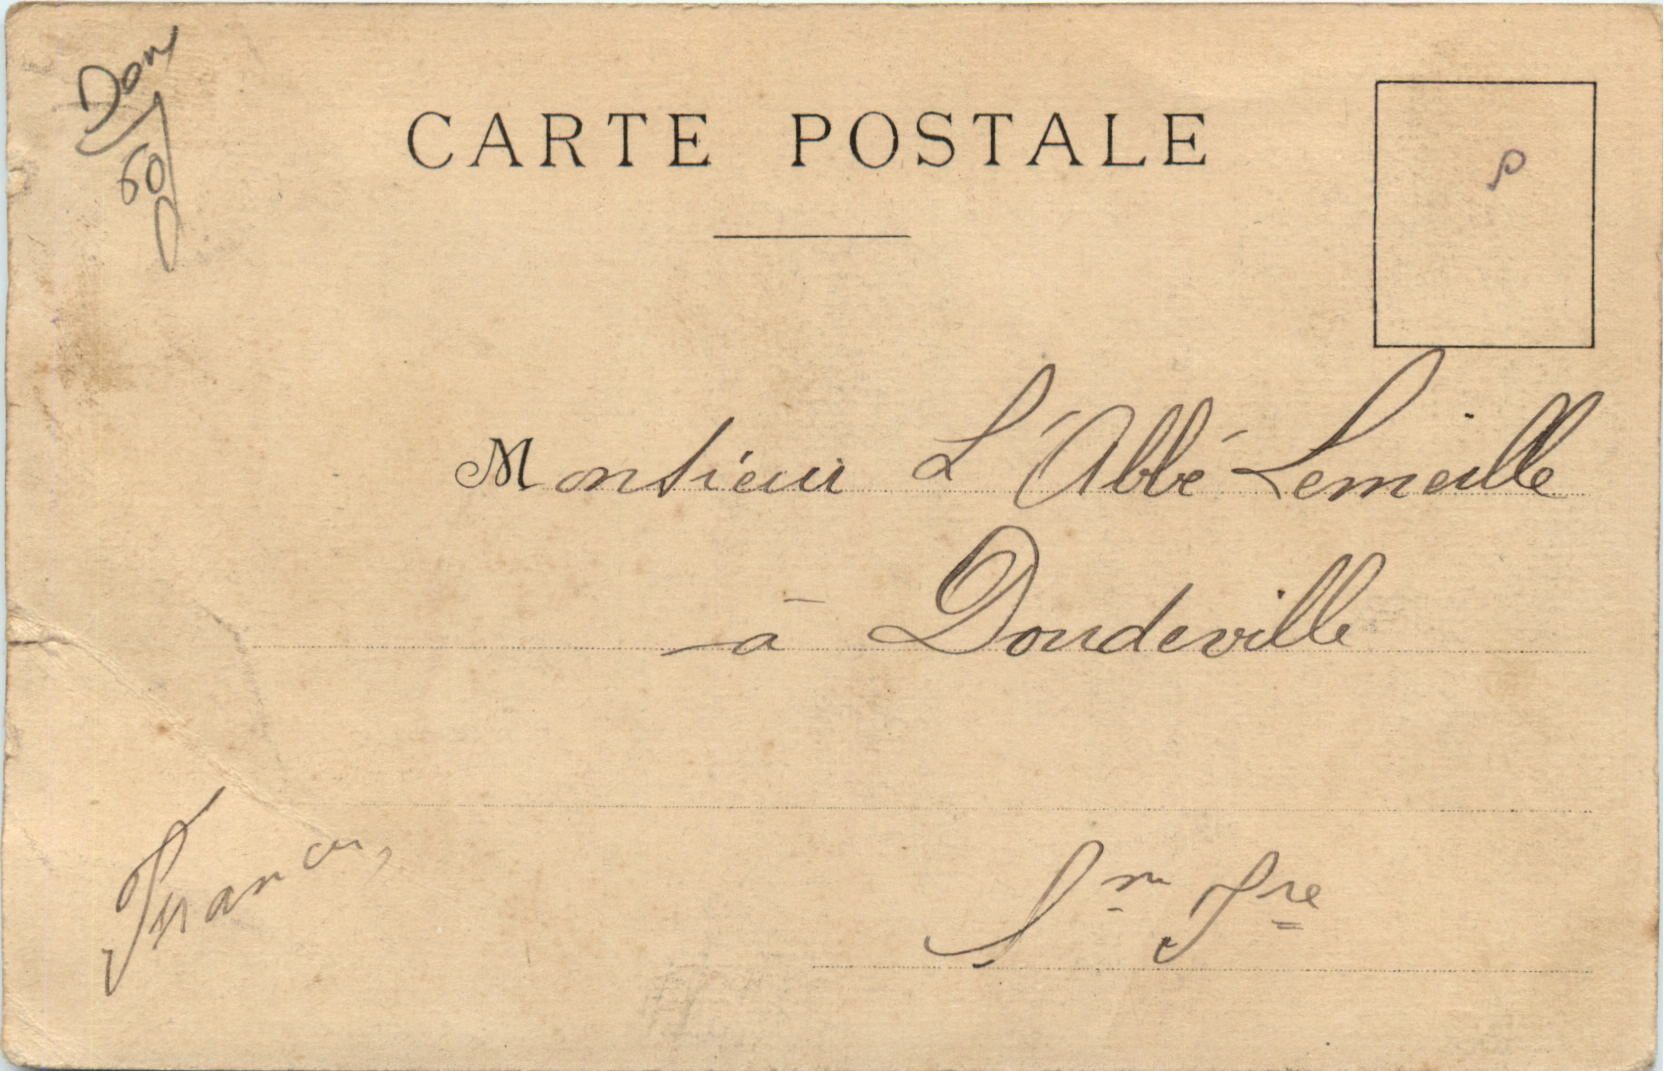 CARTE POSTALE
60
Monsieur L'Abbé Lemeille
à Doudeville
Sne Inre
France